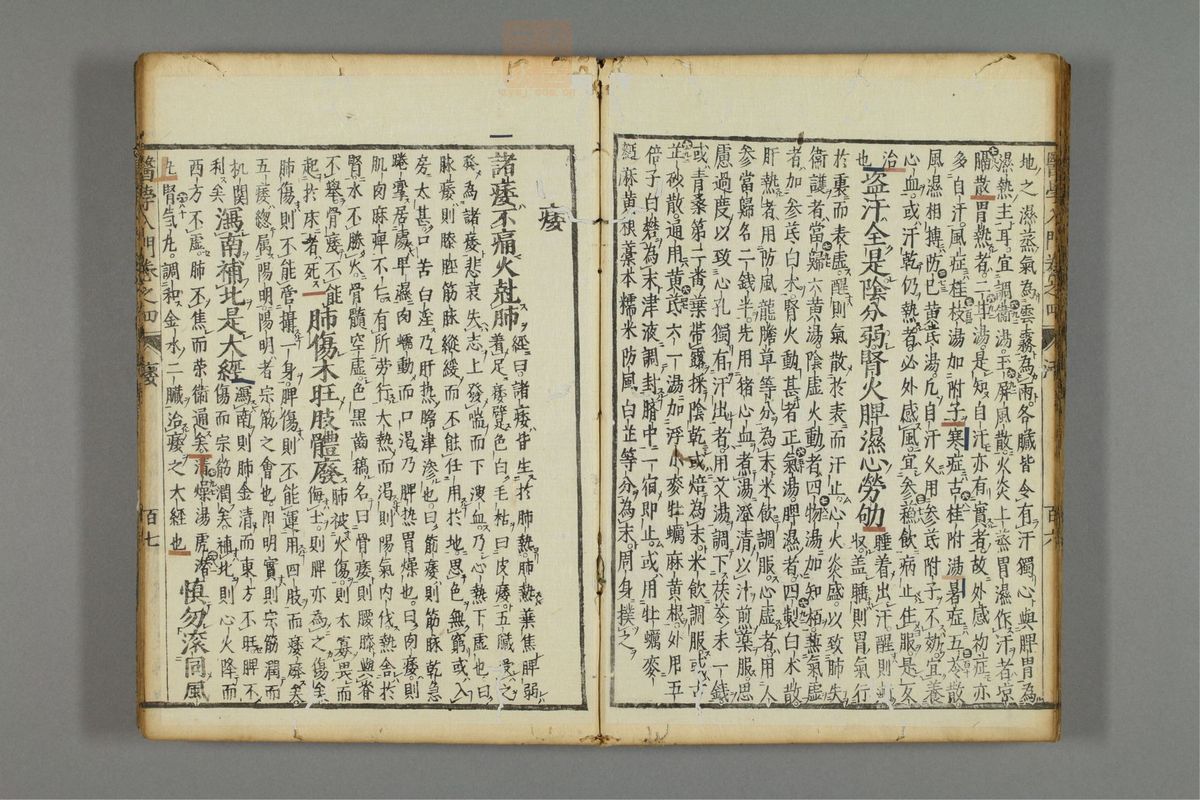 地之濕蒸氣為雲霧為雨各臟皆令有汗獨心與脾胃為
濕熱主耳宜調衛湯玉屏風散火炎上蒸胃濕作汗者凉
膈散胃熱者二甘湯是知自汗亦有實者故外感初症亦
多自汗風症桂枝湯加附子寒症古桂附湯暑症五苓散
風濕相搏防已黄芪湯凡自汗久用參芪附子不効宜養
心血或汗乾仍熱者必外感風宜參蘓飲病止住服是反
治
也盗汗全是陰分弱腎火脾濕心勞劬睡着出汗醒則
收盖睡則胃氣行
於裏而表虚醒則氣散於表而汗止心火炎盛以致肺失
衛護者當歸六黄湯陰虚火動者四物湯加知栢蒸氣虚
者加參芪白朮腎火動甚者正氣湯脾濕者四製白朮散
肝熱者用防風龍膽草等分為末米飲調服心虚者用人
參當歸各二錢半先用猪心血煮湯澄清以汁前藥服思
慮過度以致心孔獨有汗出者用艾湯調下茯苓末一錢
或青桑第二番葉帶露採陰乾或焙為末米飲調服或古
芷砂散通用黄芪六一湯加浮小麥牡蠣麻黄根外用五
倍子白礬為末津液調封臍中一宿即止或用牡蠣麥
麺麻黄根藁本糯米防風白芷等分為末周身撲之
痿
諸痿不痛火尅肺經曰諸痿皆生於肺熱肺熱葉焦脾弱
為諸痿悲哀失志上發喘而下溲血乃心熱下虚也曰
脉痿則膝脛筋脉縱緩而不能任用於地思色無窮或入
房太甚口苦白滛乃肝熱津滲也曰筋痿則筋脉乾急
居處早濕肉蠕動而口渇乃脾熱胃燥也曰肉痿則
肌肉麻痺不仁有所勞行大熱而渇則陽氣内伐熱舎於
腎水不勝火骨髓空虚色黒齒槁名曰骨痿則腰膝與脊
不舉骨痿不能
起於床者死肺傷木旺肢體廢肺被火傷則木寡畏而
侮土則脾亦為之傷矣
肺傷則不能管攝一身脾傷則不能運用四肢而痿廃矣
五痿總属陽明陽明者宗筋之會也陽明實則宗筋潤而
机関
利矣瀉南補北是大經瀉南則肺金清而東方不旺脾不
傷而宗筋潤矣補北則心火降而
西方不虚肺不焦而荣衛通矣清燥湯虎潜
丸腎氣丸調和金水二臟治痿之大經也慎勿滚同風
醫學入門卷之四
痿
百七